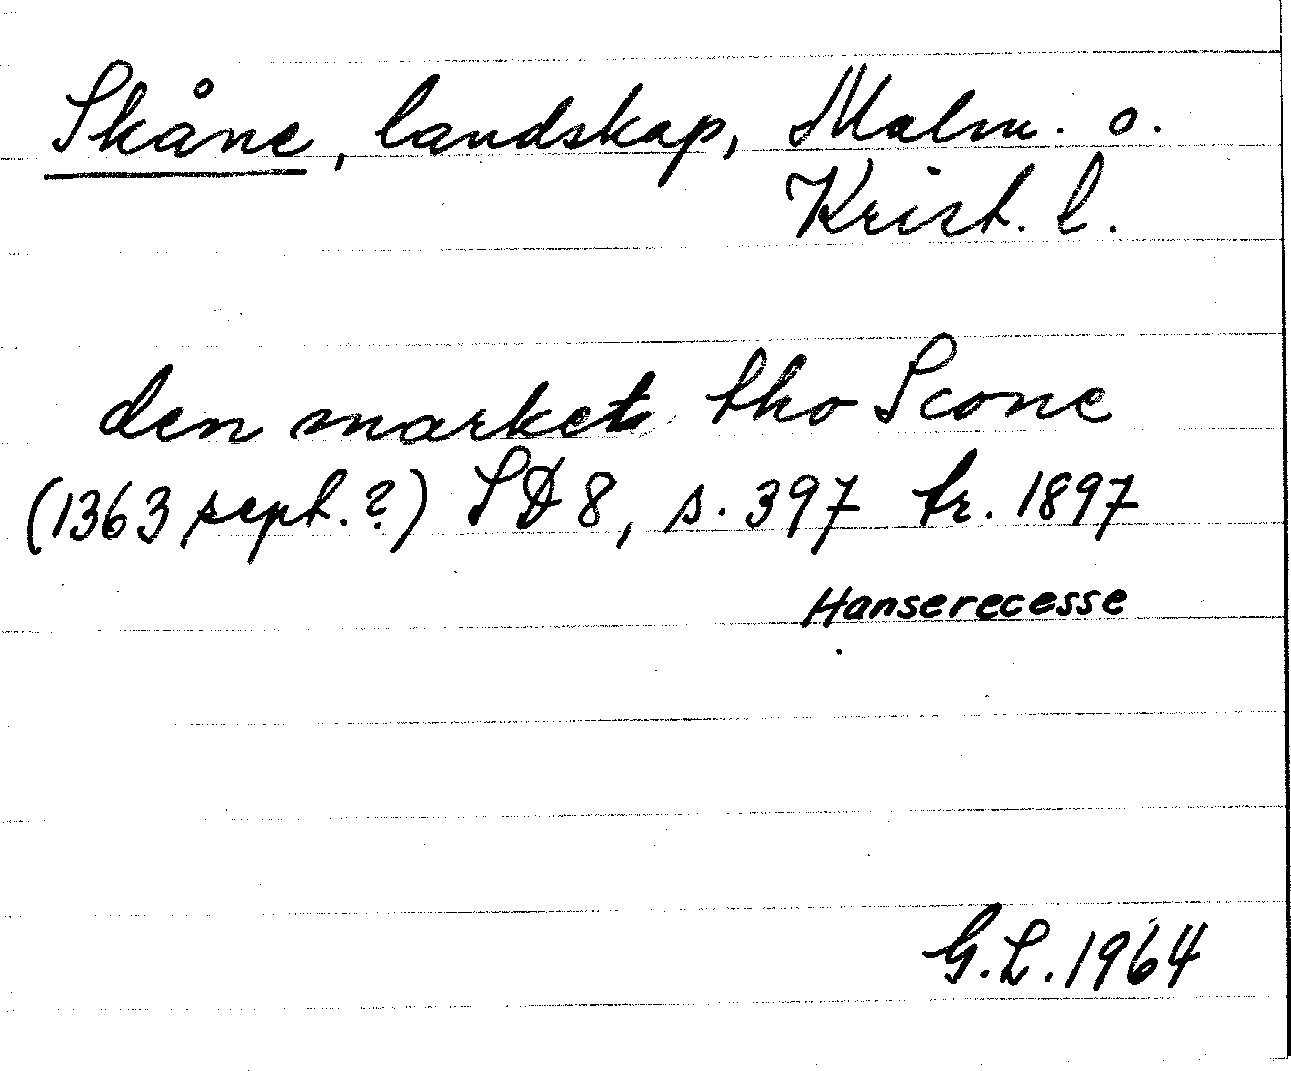 Skåne, landskap, Malm. o.
Krist. l.
den market tho Scone
(1363 sept.?) SD 8, s. 397 tr. 1897
Hanserecesse
G.L. 1964